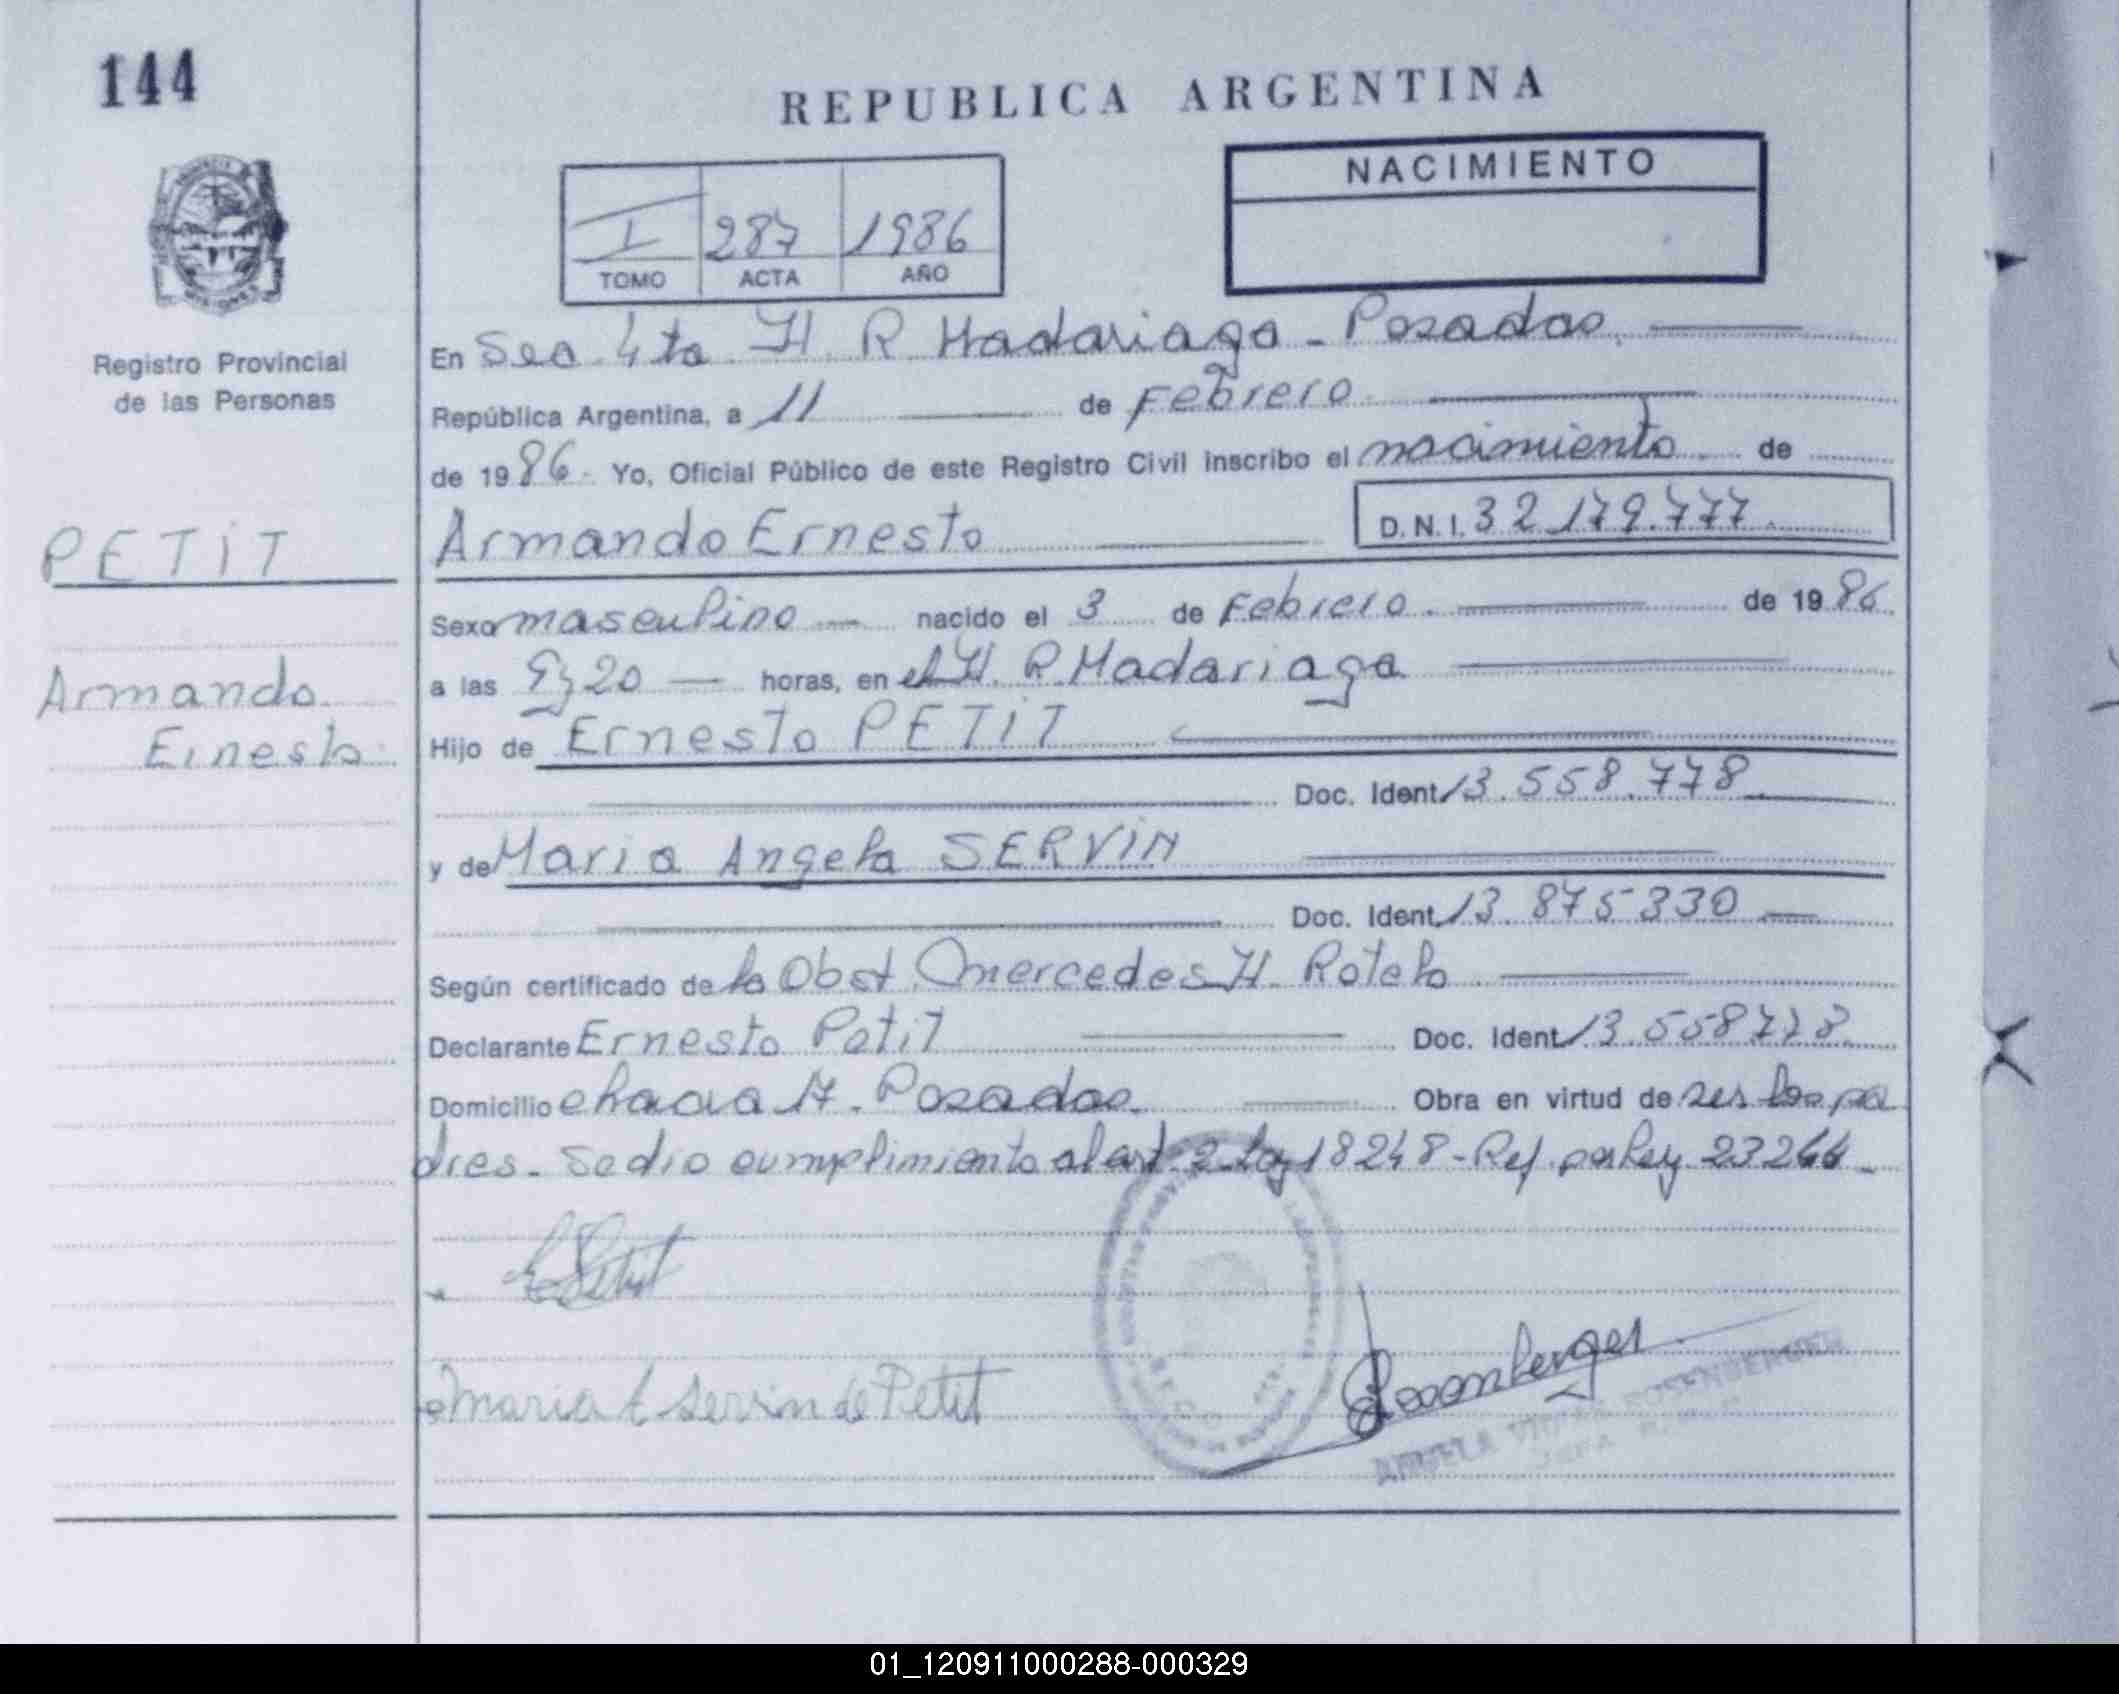 144
REPUBLICA ARGENTINA
NACIMIENTO
I 287 1986
TOMO ACTA AÑO
MISIONES
Registro Provincial
de las Personas
En Sec 4ta H. R. Madariaga - Posadas.
República Argentina, a 11 de Febrero
de 1986. Yo, Oficial Público de este Registro Civil inscribo el nacimiento de
PETIT
Armando Ernesto D.N.I. 32.179.777.
Sexo masculino nacido el 3 de Febrero de 1986
Armando
Ernesto
a las 9,20 horas, en el H. R. Madariaga
Hijo de Ernesto PETIT
Doc. Ident. 13.558.778
y de Maria Angela SERVIN
Doc. Ident. 13.875330
Según certificado de la Obst. Mercedes H. Rotela
Declarante Ernesto Petit Doc. Ident. 13.558778.
Domicilio chacra 17. Posadas. Obra en virtud de ser los pa
dres. Se dio cumplimiento al art. 2 Ley 18248 - Ref. por Ley 23264
E Petit
Maria A Servin de Petit
Rosenberger
ANGELA ROSENBERGER
JEFA
01_120911000288-000329